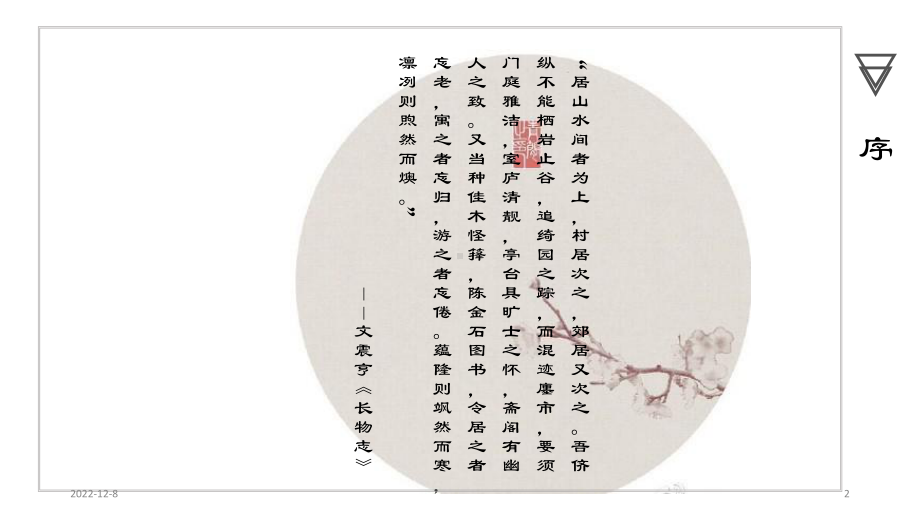 序
“居山水间者为上，村居次之，郊居又次之。吾侪
纵不能栖岩止谷，追绮园之踪，而混迹廛市，要须
门庭雅洁，室庐清靓，亭台具旷士之怀，斋阁有幽
人之致。又当种佳木怪箨，陈金石图书，令居之者
忘老，寓之者忘归，游之者忘倦。蕴隆则飒然而寒，
凛冽则煦然而燠。”
——文震亨《长物志》
2022-12-8
2